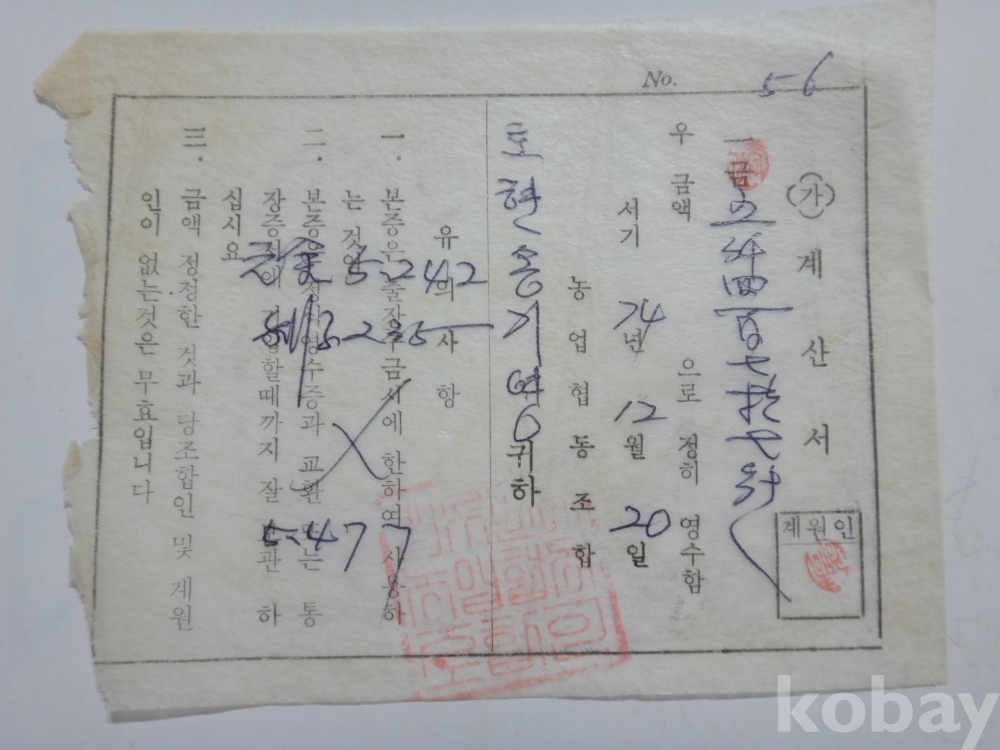 No. 5-6
(가) 계산서
계원인
一금 오阡四百七拾七원
우 금액 으로 정히 영수함
서기 74년 12월 20일
농업협동조합
귀하
유의사항
一. 본증은 출장수금시에 한하여 사용하
는 것
二. 본증은 영수증과 교환 또는 통
장증 할때까지 잘 보관 하
십시요
三. 금액 정정한 것과 당조합인 및 계원
인이 없는것은 무효입니다
5-242
5-477
kobay